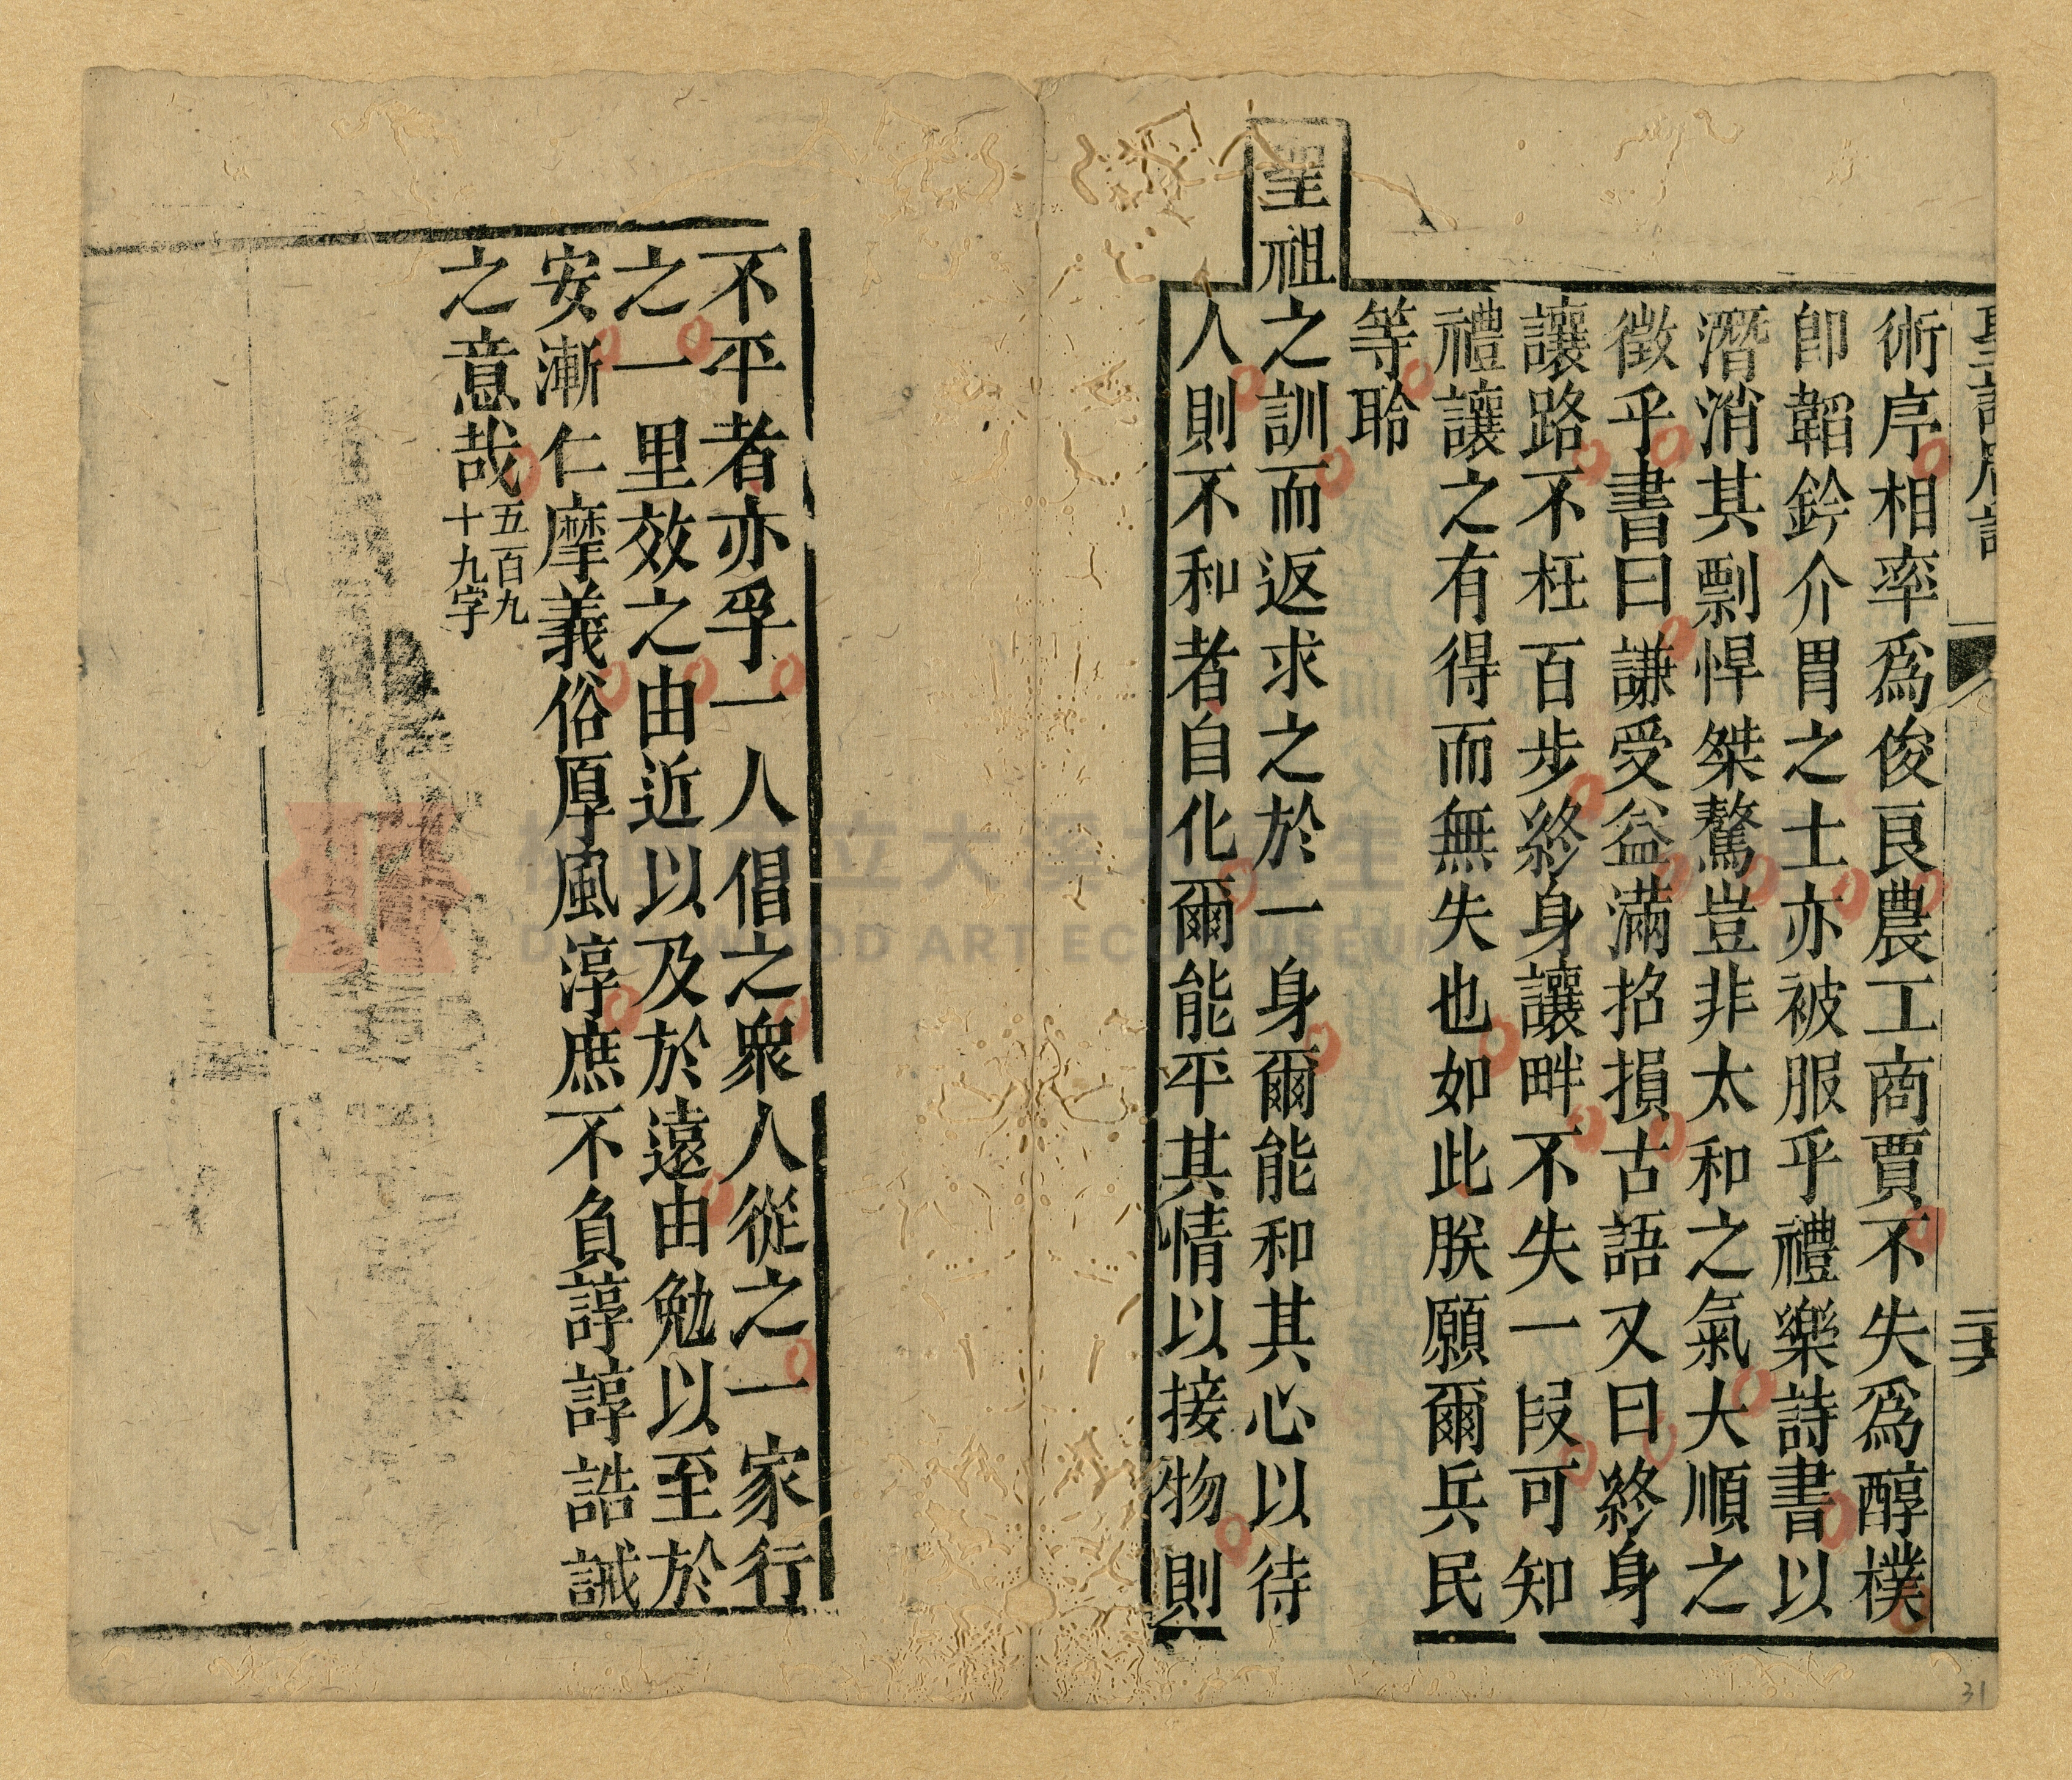 術序相率為俊良農工商賈不失為醇樸
卽韜鈐介胄之士亦被服乎禮樂詩書以
潛消其剽悍桀驁豈非太和之氣大順之
徵乎書曰謙受益滿招損古語又曰終身
讓路不枉百步終身讓畔不失一段可知
禮讓之有得而無失也如此朕願爾兵民
等聆
聖祖之訓而返求之於一身爾能和其心以待
人則不和者自化爾能平其情以接物則
不平者亦孚一人倡之衆人從之一家行
之一里效之由近以及於遠由勉以至於
安漸仁摩義俗厚風淳庶不負諄諄誥誡
之意哉五百九
十九字
31